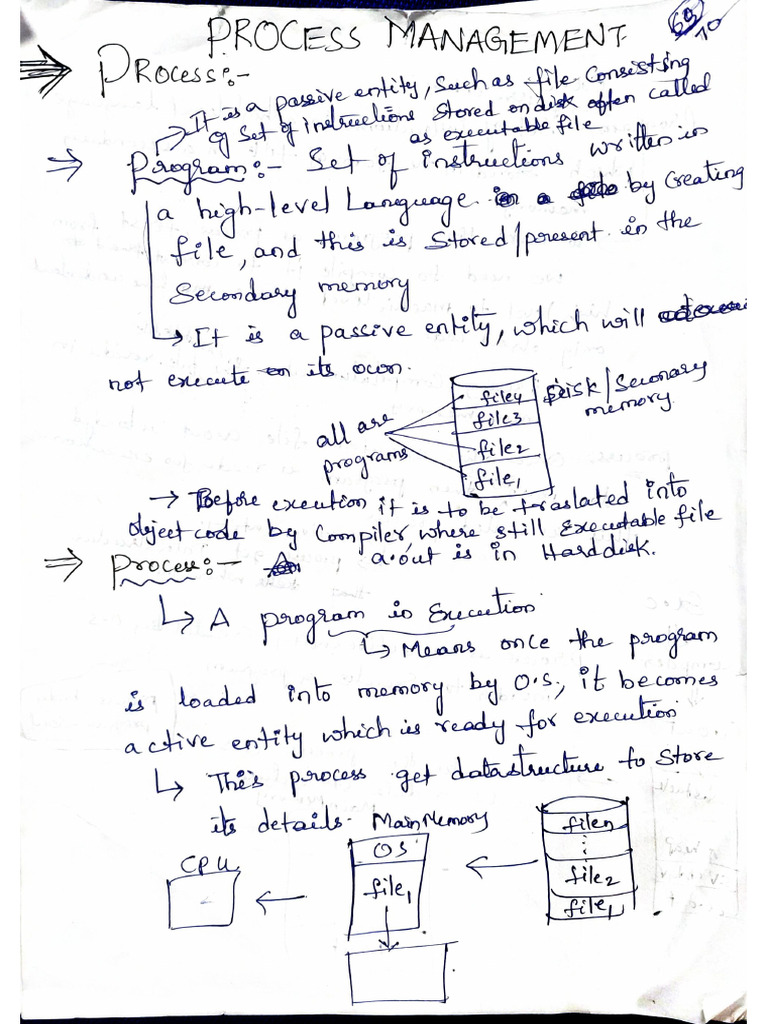 PROCESS MANAGEMENT
69
10
PROCESS:-
It is a passive entity, Such as file Consisting
of Set of instructions Stored on disk often called
as executable file
Program:- Set of instructions written in
a high-level Language by Creating
file, and this is Stored/present in the
Secondary memory
It is a passive entity, which will
not execute its own.
all are
programs
file4
file3
file2
file1
Disk/Seconary
memory
Before exection it is to be traslated into
object code by Compiler where still Executable file
a.out is in Harddisk.
Process:-
A program in Execution
Means once the program
is loaded into memory by O.S., it becomes
active entity which is ready for execution
This process get datastructure to Store
its details.
Main Memory
CPU
OS
file1
filen
file2
file1